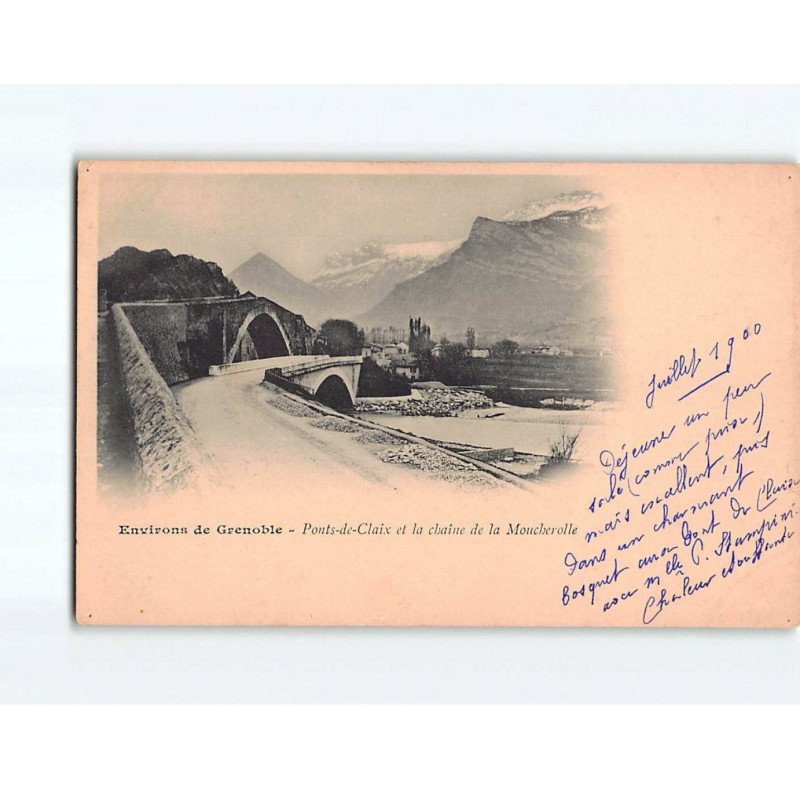 Environs de Grenoble - Ponts-de-Claix et la chaîne de la Moucherolle
Juillet 1900
Déjeuné un peu
salé (comme prix)
mais excellent, pris
dans un charmant
bosquet au Pont de Claix
avec Mlle P.
Chaleur étouffante